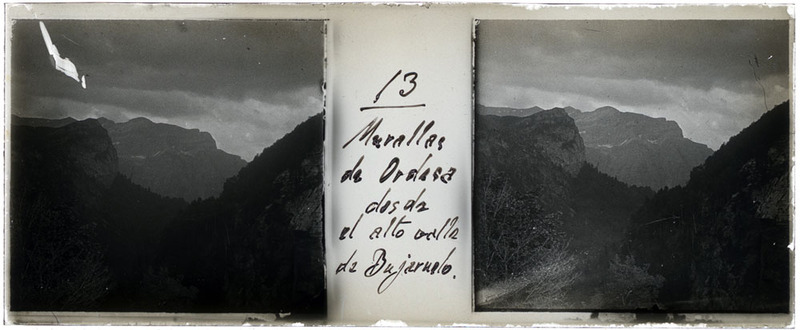 13
Murallas
de Ordesa
desde
el alto valle
de Bujaruelo.